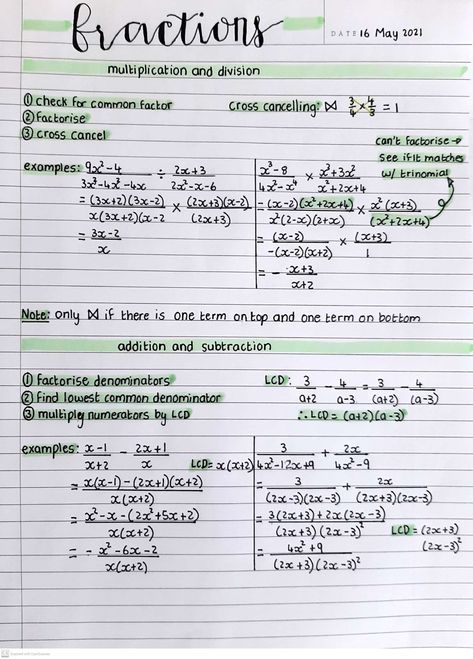 fractions
DATE 16 May 2021
multiplication and division
① check for common factor
② Factorise
③ cross cancel
Cross cancelling: ⋈ 3/4 × 4/3 = 1
can't factorise →
see if it matches
w/ trinomial
examples: 9x² - 4 / 3x³ - 4x² - 4x ÷ 2x + 3 / 2x² - x - 6
= (3x+2)(3x-2) / x(3x+2)(x-2 × (2x+3)(x-2) / (2x+3)
= 3x - 2 / x
x³ - 8 / 4x² - x⁴ × x³ + 3x² / x² + 2x + 4
= (x-2)(x²+2x+4) / x²(2-x)(2+x) × x²(x+3) / (x²+2x+4)
= (x-2) / -(x-2)(x+2) × (x+3) / 1
= - x+3 / x+2
Note: only ⋈ if there is one term on top and one term on bottom
addition and subtraction
① factorise denominators
② find lowest common denominator
③ multiply numerators by LCD
LCD: 3 / a+2 - 4 / a-3 = 3 / (a+2) - 4 / (a-3)
∴ LCD = (a+2)(a-3)
examples: x-1 / x+2 - 2x+1 / x
LCD = x(x+2)
= x(x-1) - (2x+1)(x+2) / x(x+2)
= x² - x - (2x² + 5x + 2) / x(x+2)
= - x² - 6x - 2 / x(x+2)
3 / 4x² - 12x + 9 + 2x / 4x² - 9
= 3 / (2x-3)(2x-3) + 2x / (2x+3)(2x-3)
= 3(2x+3) + 2x(2x-3) / (2x+3)(2x-3)²
LCD = (2x+3)
(2x-3)²
= 4x² + 9 / (2x+3)(2x-3)²
CS Scanned with CamScanner